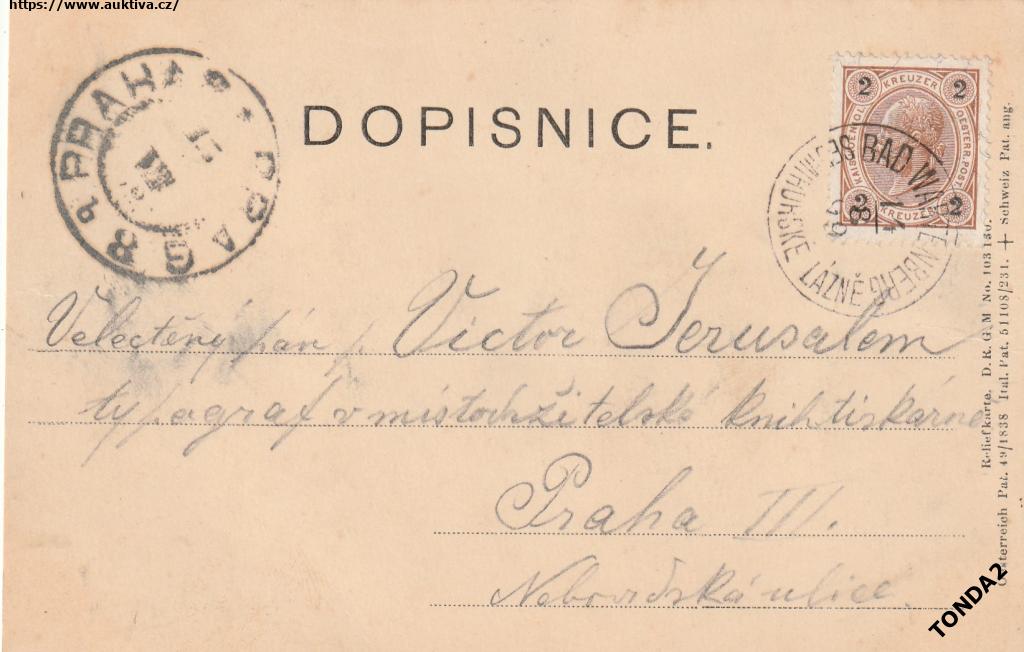 https://www.auktiva.cz/
PRAHA PRAG 8
DOPISNICE.
2 KREUZER 2
OESTERR. POST
2 KREUZER 2
BAD WARTENBERG
SEDMIHORSKÉ LÁZNĚ
Velectěný pán p. Victor Jerusalem
typograf v místodržitelské knihtiskárně
Praha III.
Nebovidská ulice.
Reliefkarte. D. R. G. M No. 103130.
Oesterreich Pat. 49/1838 Ital. Pat. 51108/231. + Schweiz Pat. ang.
TONDA2